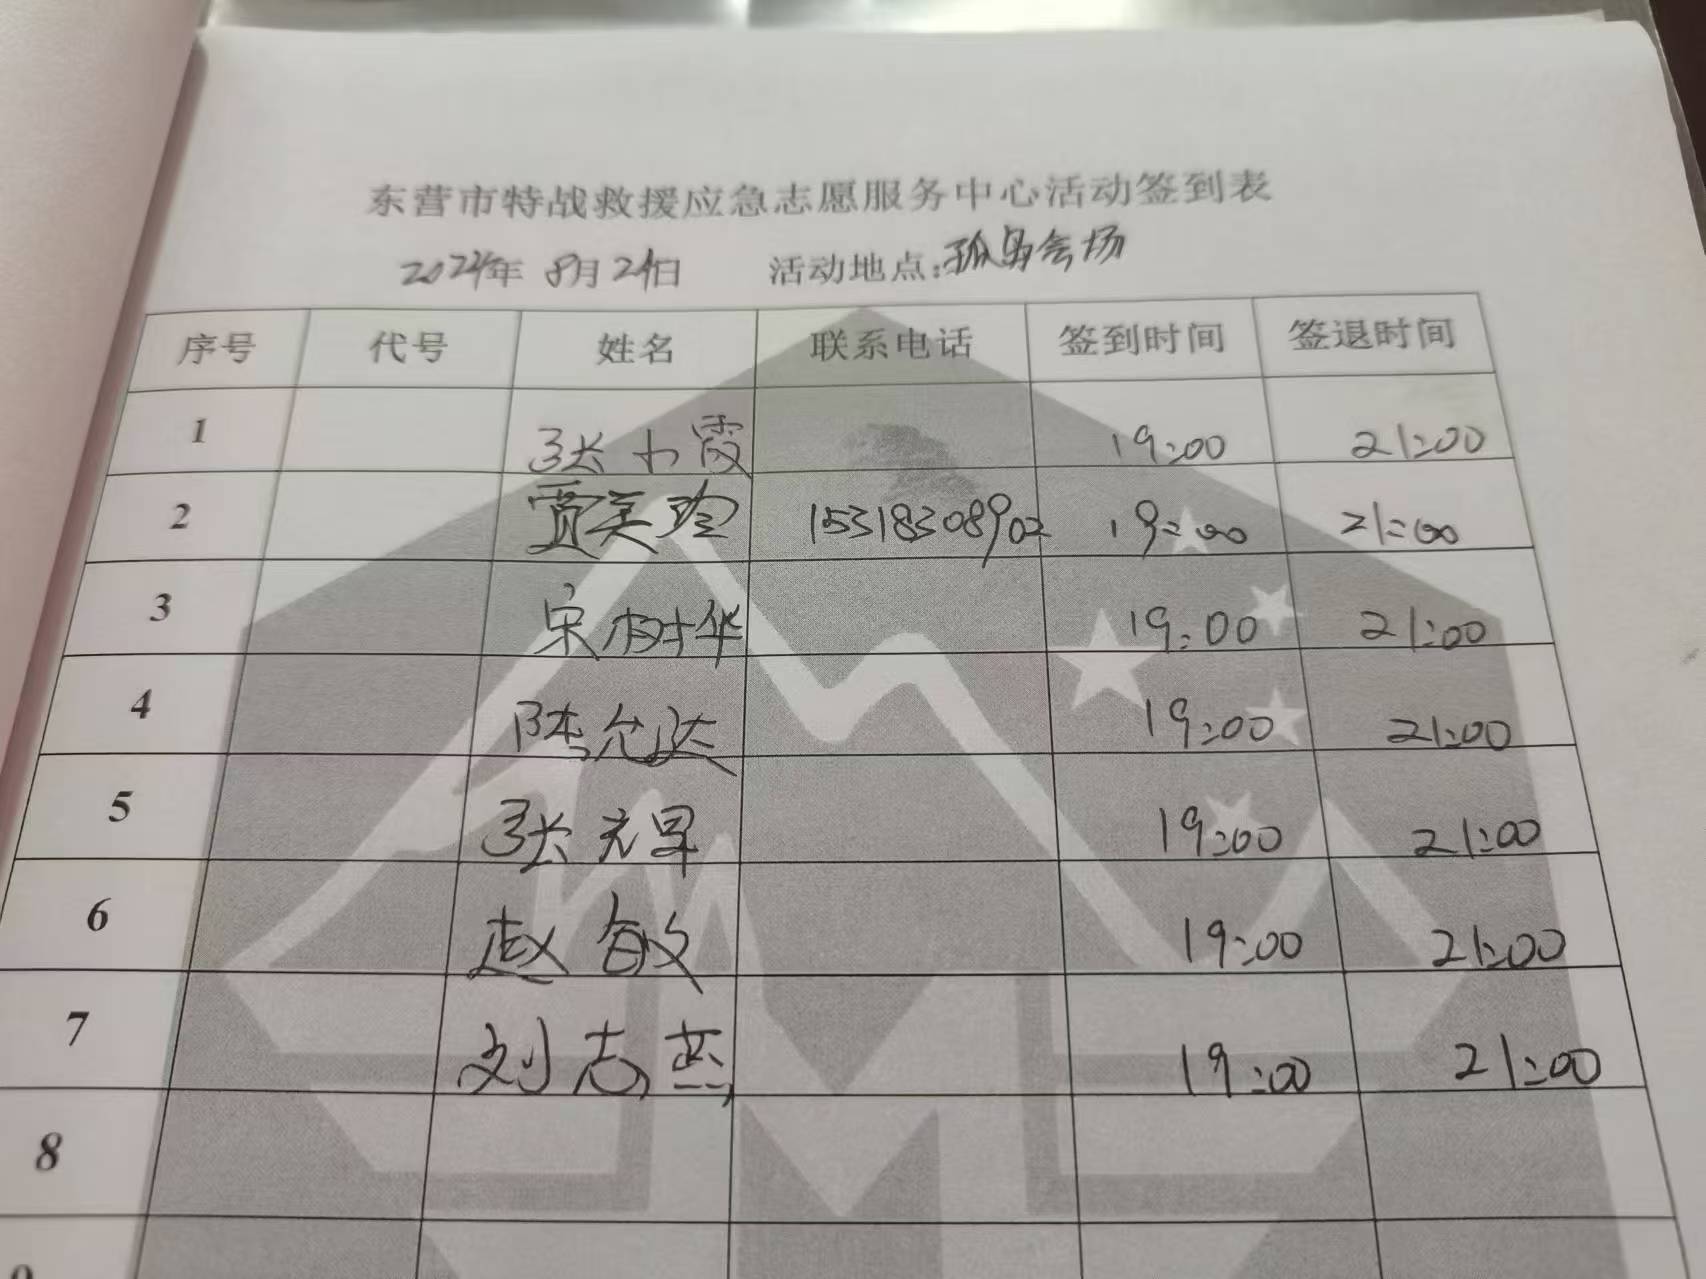 东营市特战救援应急志愿服务中心活动签到表
2024年 8月24日 活动地点:孤岛会场
序号 代号 姓名 联系电话 签到时间 签退时间
1 张小霞 19:00 21:00
2 贾美玲 15318308902 19:00 21:00
3 宋树华 19:00 21:00
4 陈允达 19:00 21:00
5 张元早 19:00 21:00
6 赵敏 19:00 21:00
7 刘志燕 19:00 21:00
8